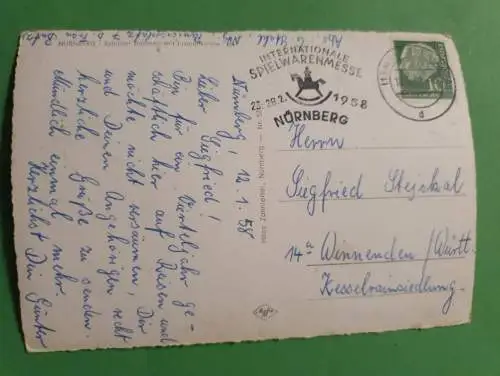 INTERNATIONALE
SPIELWARENMESSE
23.-28.2. 1958
NÜRNBERG
d
Herrn
Siegfried Stejskal
14a Winnenden/Württ.
Kesselrainsiedlung.
Nürnberg, 12.1.58
Lieber Siegfried!
Bin für ein Vierteljahr ge-
schäftlich hier auf Reisen und
möchte nicht versäumen, Dir
und Deinen Angehörigen recht
herzliche Grüße zu senden.
Mündlich einmal mehr.
Herzlichst Dein Günter